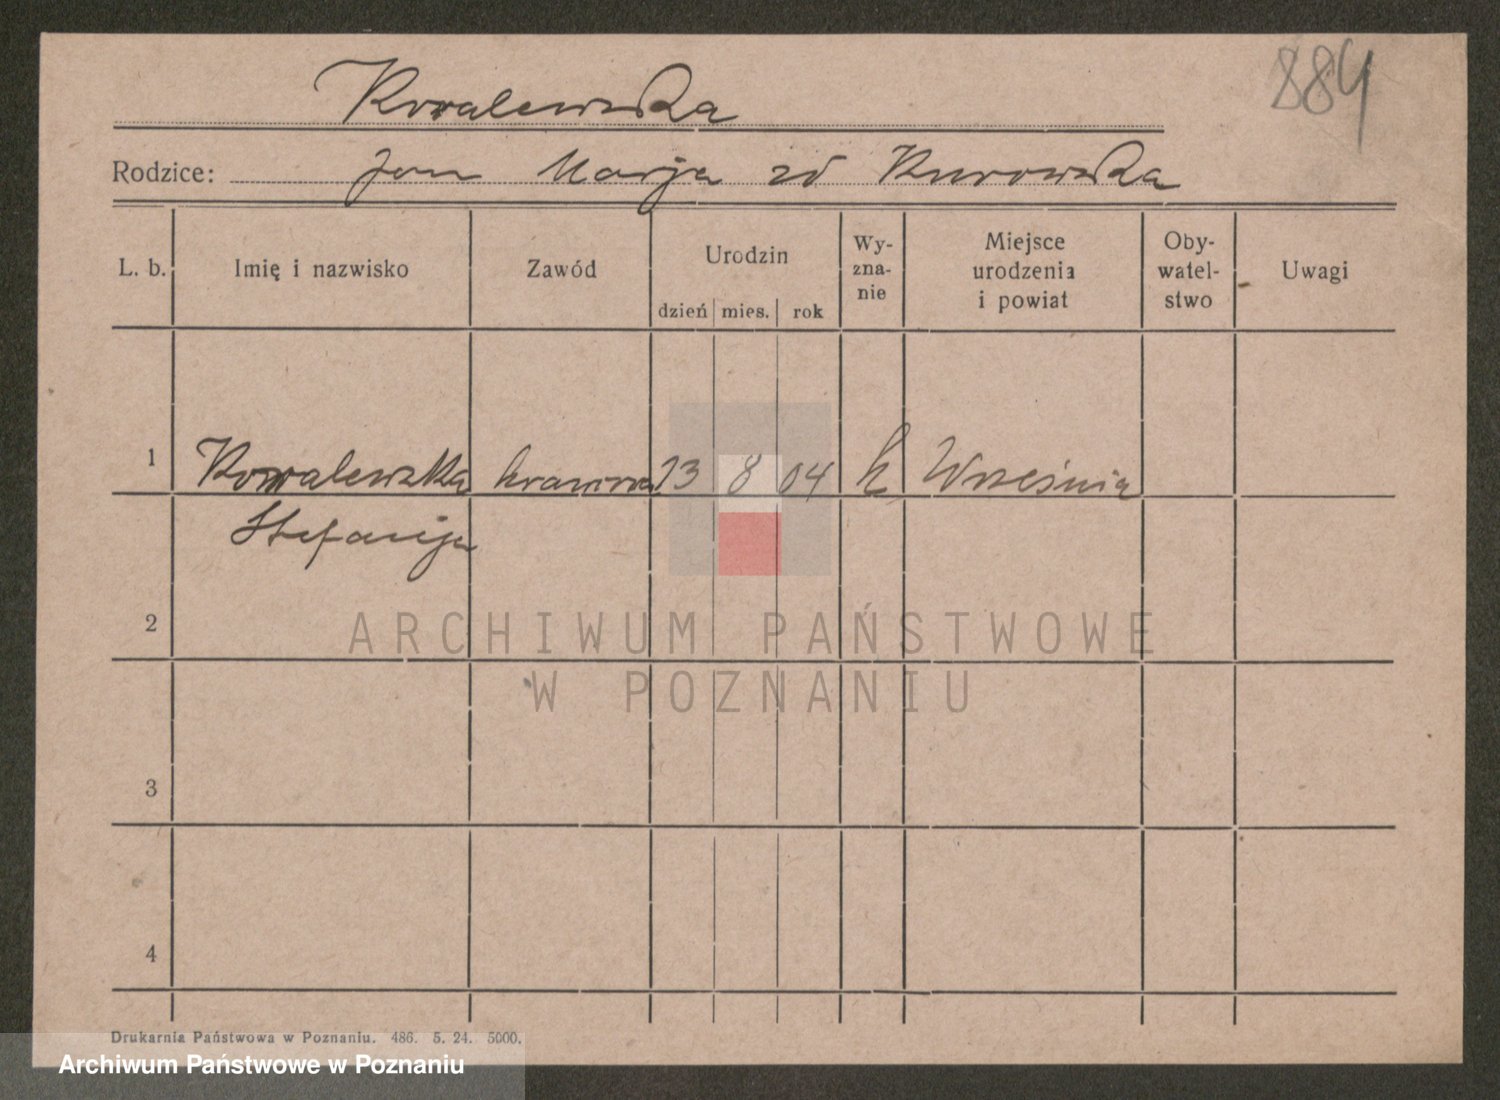 884
Kowalewska
Rodzice: Jan Marja zd Kurowska
L. b. Imię i nazwisko Zawód Urodzin Wy-zna-nie Miejsce urodzenia i powiat Oby-watel-stwo Uwagi
dzień mies. rok
1 Kowalewska krawcowa 13 8 04 k Września
Stefanja
2
3
4
ARCHIWUM PAŃSTWOWE
W POZNANIU
Drukarnia Państwowa w Poznaniu. 486. 5. 24. 5000.
Archiwum Państwowe w Poznaniu